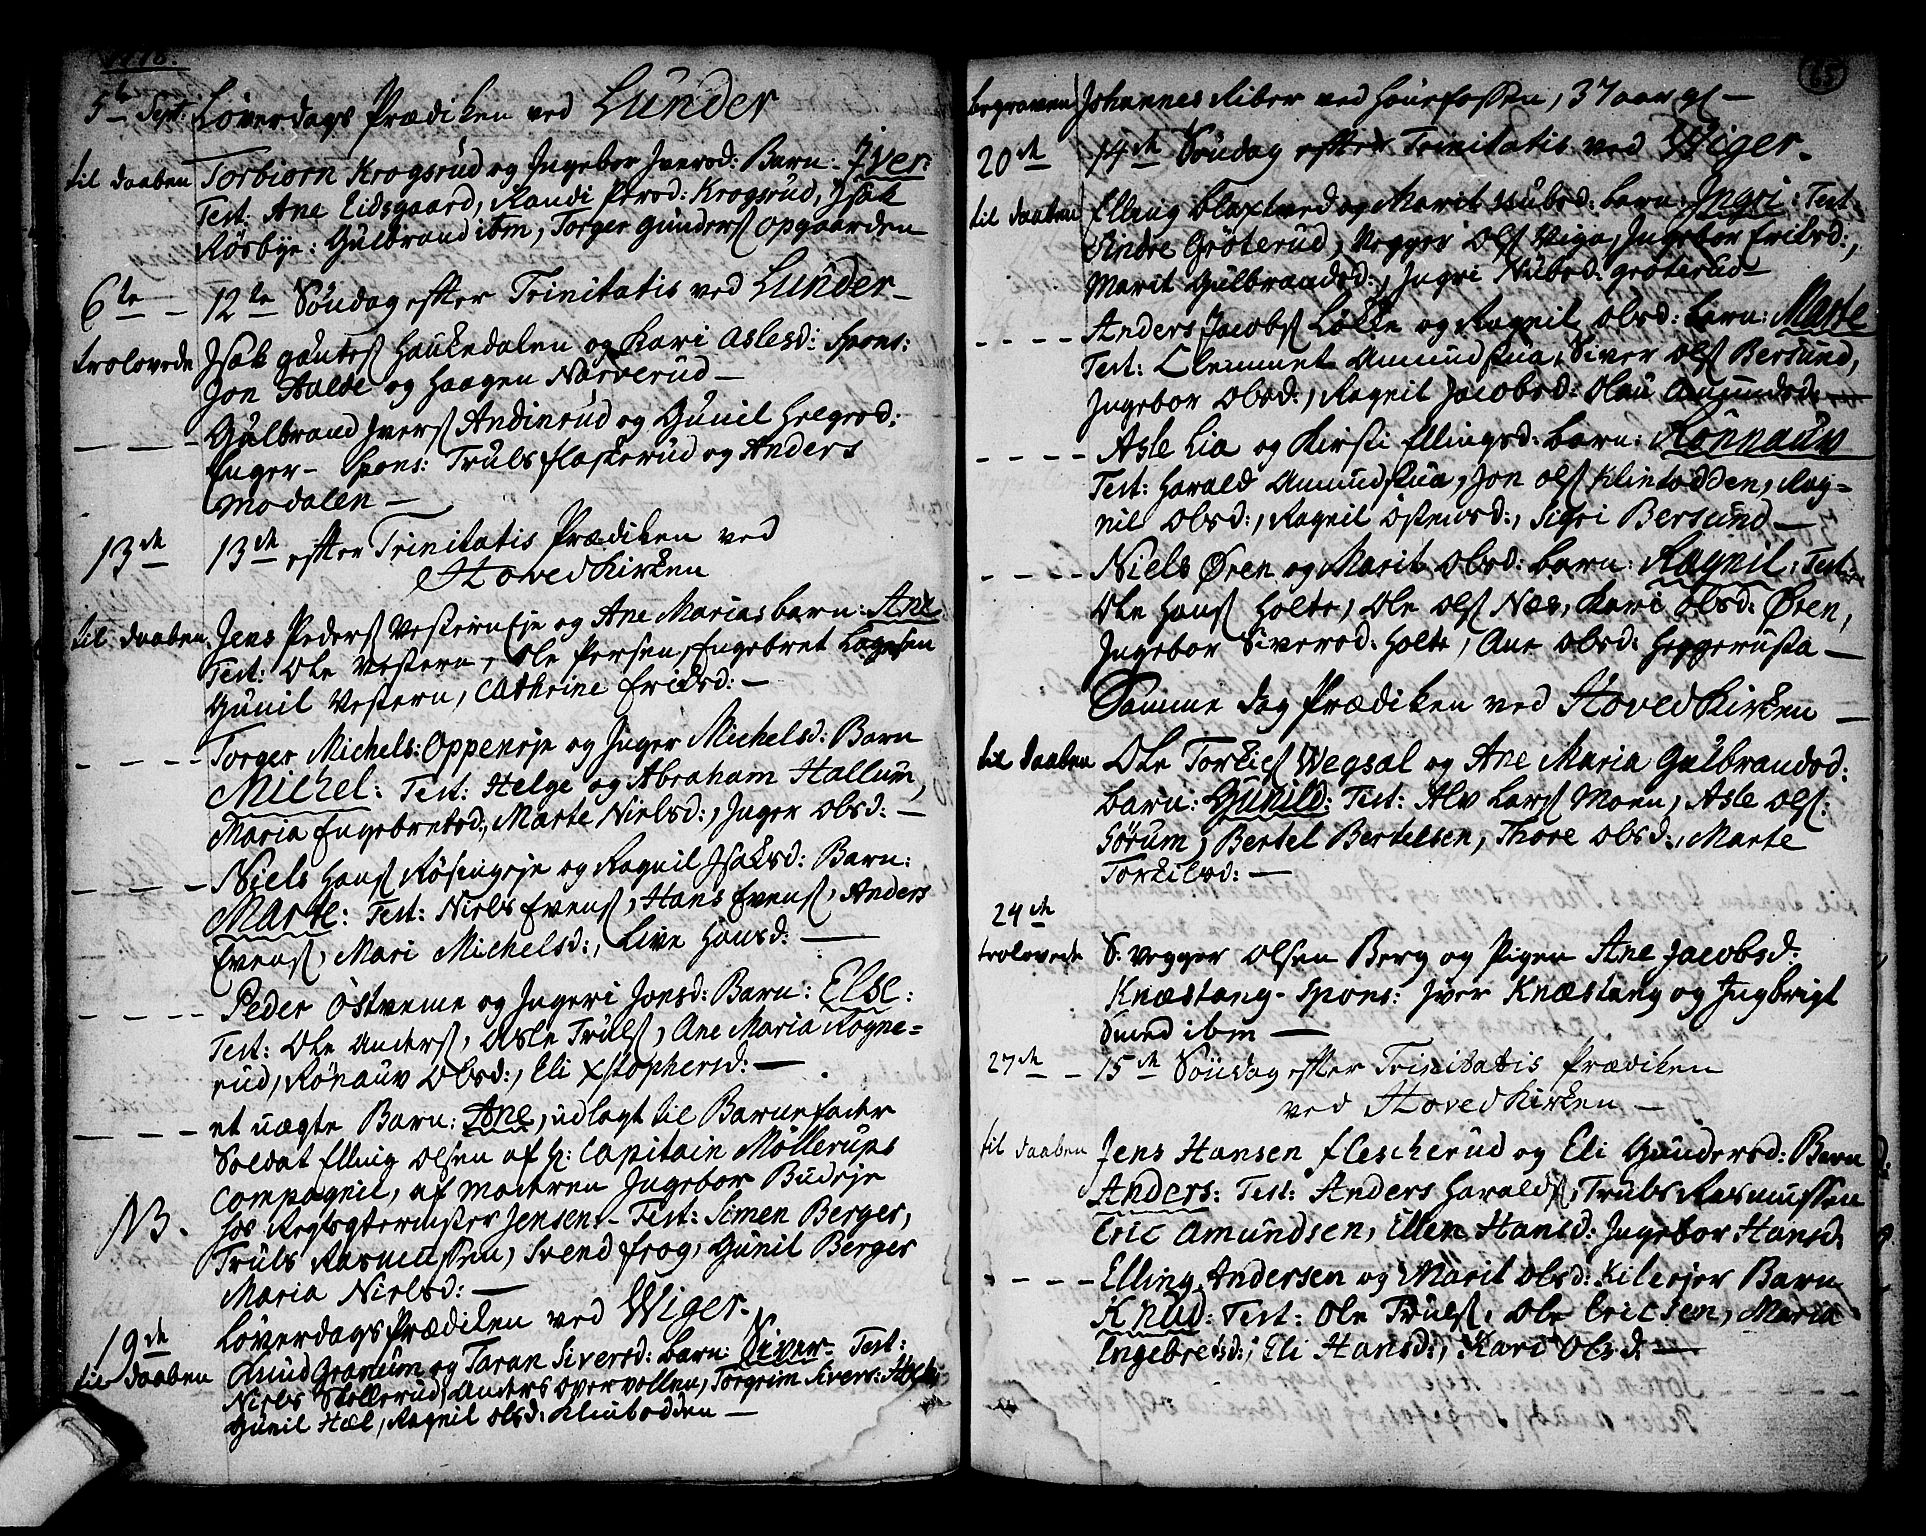 1778.
5te Sept: Løverdags Prædiken ved Lunder
til daaben Torbiørn Krogsrud og Ingebor Iversd: Barn: Iver:
Test: Ane Eidsgaard, Randi Persd: Krogsrud, Isak
Røsbye: Gulbrand ibm, Torger Gunders Opgaarden
6te - 12te Søndag efter Trinitatis ved Lunder -
trolovede Isak Gautes Haukedalen og Kari Aslesd: Spons:
Jon Aalde og Haagen Narverud -
- - - Gulbrand Ivers Andinrud og Gunil Helgesd:
Enger - Spons: Truls Flaskerud og Anders
Modalen -
13de 13de efter Trinitatis Prædiken ved
HovedKirken
til daaben Jens Peders VesternEje og Ane Marias barn: Ane
Test: Ole Vestern, Ole Persen, Engebret Lagesen
Gunil Vestern, Cathrine Eriksd: -
- - - Torger Michels: Oppeneje og Inger Michelsd: Barn
Michel: Test: Helge og Abraham Hallum,
Maria Engebretsd:, Marte Nielsd:, Inger Olsd: -
- - - Niels Hans Røsingeje og Ragnil Isaksd: Barn:
Marte: Test: Niels Evens, Hans Evens, Anders
Evens, Mari Michelsd:, Live Hansd: -
- - - Peder Østveme og Ingeri Jonsd: Barn: Else:
Test: Ole Anders, Asle Truls, Ane Maria Rogne=
rud, Rønauv Olsd:, Eli Xstophersd: -
- - - et uægte Barn: Ane, udlagt til Barnefader
Soldat Elling Olsen af H: Capitain Møllerups
Compagnie, af Moderen Ingebor Budeje
NB. hos Regtqtermester Jensen - Test: Simen Berger,
Truls Rasmussen, Svend Frog, Gunil Berger
Maria Nielsd: -
19de Løverdags Prædiken ved Wiger.
til daaben Knud Granum og Taran Siversd: barn: Siver - Test:
Niels Skollerud, Anders Overvollen, Torgrim Sivers:
Gunil Hæl, Ragnil Olsd: Klintodden -
65
begraven Johannes Riber ved Hønefossen, 37 aar gl -
20de 14de Søndag efter Trinitatis ved Wiger -
til daaben Elling Olaxtved og Marit Nubsd: barn: Ingri: Test
Andre Grøterud, Vegger Ols Viga, Ingebor Eriksd:,
Marit Gulbrandsd:, Ingri Nubsd: Grøterud -
- - - - Anders Jacobs Løkke og Ragnil Olsd: barn: Marte
Test: Clemmet Amundsrua, Siver Ols Bersund,
Ingebor Olsd:, Ragnil Jacobsd: Olau Amundsd: -
- - - - Asle Lia og Kirsti Ellingsd: barn: Rønnauv
Test: Harald Amundsrua, Jon Ols Klintodden, Rag=
nil Olsd:, Ragnil Østensd:, Sigri Bersund -
- - - - Niels Øren og Marit Olsd: barn: Ragnil: Test:
Ole Hans Holte, Ole Ols Næs, Kari Olsd: Øren,
Ingebor Siversd: Holte, Ane Olsd: Heggerusta -
Samme dag Prædiken ved HovedKirken -
til daaben Ole Torkils Wegsal og Ane Maria Gulbrandsd:
barn: Gunild: Test: Alv Lars Moen, Asle Ols:
Sørum, Bertel Bertelsen, Thore Olsd:, Marte
Torkilsd: -
24de
trolovede S: Vegger Olsen Berg og Pigen Ane Jacobsd:
Knæstang - Spons: Iver Knæstang og Ingbrigt
Smed ibm -
27de - 15de Søndag efter Trinitatis Prædiken
ved HovedKirken -
til daaben Jens Hansen Flescherud og Eli Gundersd: Barn
Anders: Test: Anders Haralds, Truls Rasmussen
Eric Amundsen, Ellen Hansd: Ingebor Hansd:
- - - - Elling Andersen og Marit Olsd: Kilejer Barn
Knud: Test: Ole Truls, Ole Ericsen, Maria
Engebretsd:, Eli Hansd:, Kari Olsd: -